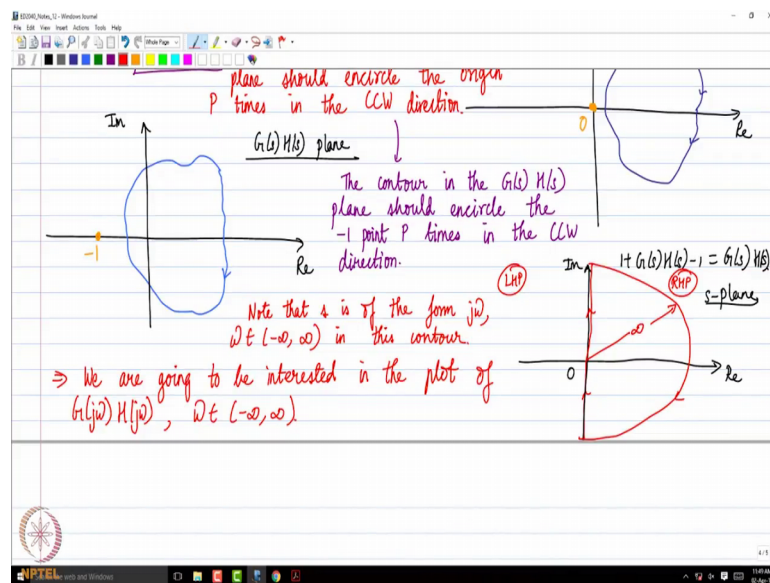 ED2040_Notes_12 - Windows Journal
File Edit View Insert Actions Tools Help
Whole Page
B I
plane should encircle the origin
P times in the CCW direction.
0
Re
Im
G(s) H(s) plane
-1
Re
The contour in the G(s) H(s)
plane should encircle the
-1 point P times in the CCW
direction.
1+G(s)H(s)-1 = G(s)H(s)
LHP
Im
RHP
s-plane
∞
0
Re
Note that s is of the form jω,
ω ∈ (-∞, ∞) in this contour.
⇒ We are going to be interested in the plot of
G(jω) H(jω), ω ∈ (-∞, ∞).
4/5
NPTEL
web and Windows
11:49 AM